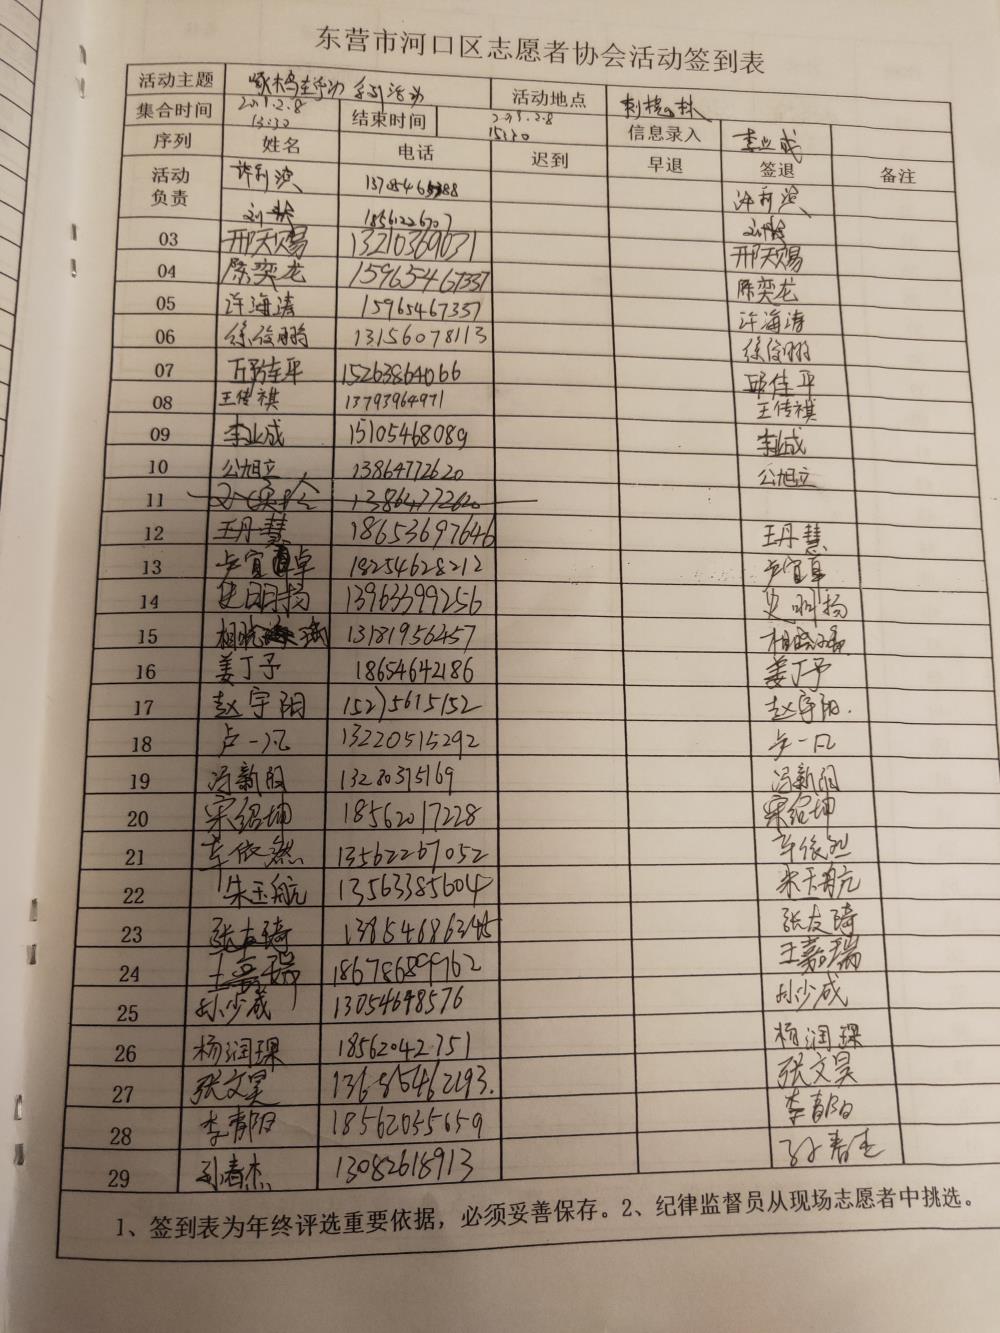 东营市河口区志愿者协会活动签到表
活动主题 啄木鸟在行动 系列活动 活动地点
集合时间 13:30 结束时间 15:30 信息录入 李业成
序列 姓名 电话 迟到 早退 签退 备注
活动负责 许利滨 许利滨
18561226707
03 邢天赐 13210369031 邢天赐
04 陈奕龙 15965467337 陈奕龙
05 许海涛 15965467337 许海涛
06 徐俊鹏 13156078113 徐俊鹏
07 邱佳平 15263864066 邱佳平
08 王传祺 13793964971 王传祺
09 李业成 15105468089 李业成
10 公旭立 13864772620 公旭立
11 13864772620
12 王丹慧 18653697646 王丹慧
13 卢宜卓 18254628212 卢宜卓
14 史明扬 13963399256 史明扬
15 13181956457
16 姜丁予 18654642186 姜丁予
17 赵宇阳 15275615152 赵宇阳.
18 卢一凡 13220515292 卢一凡
19 冯新阳 13280375169 冯新阳
20 宋绍坤 18562017228 宋绍坤
21 车依然 13562267052 车依然
22 朱玉航 13563385604 朱玉航
23 张友琦 13854686345 张友琦
24 王嘉瑞 18678689962 王嘉瑞
25 孙少成 13054648576 孙少成
26 杨润琪 18562042751 杨润琪
27 张文昊 张文昊
28 李青阳 18562055659 李青阳
29 13082618913
1、签到表为年终评选重要依据，必须妥善保存。2、纪律监督员从现场志愿者中挑选。